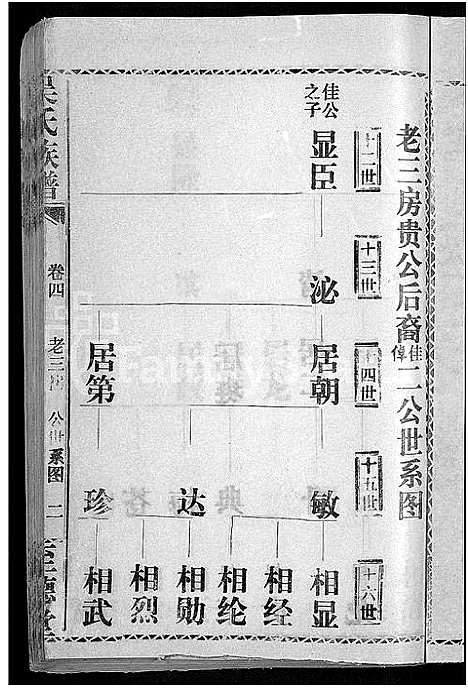 老三房贵公后裔佳倬二公世系图
十二世
十三世
十四世
十五世
十六世
佳公之子
显臣
泌
居朝
居第
敏
达
珍
相显
相经
相纶
相勋
相烈
相武
吴氏族谱
卷四
老三房
公世系图
二
至德堂